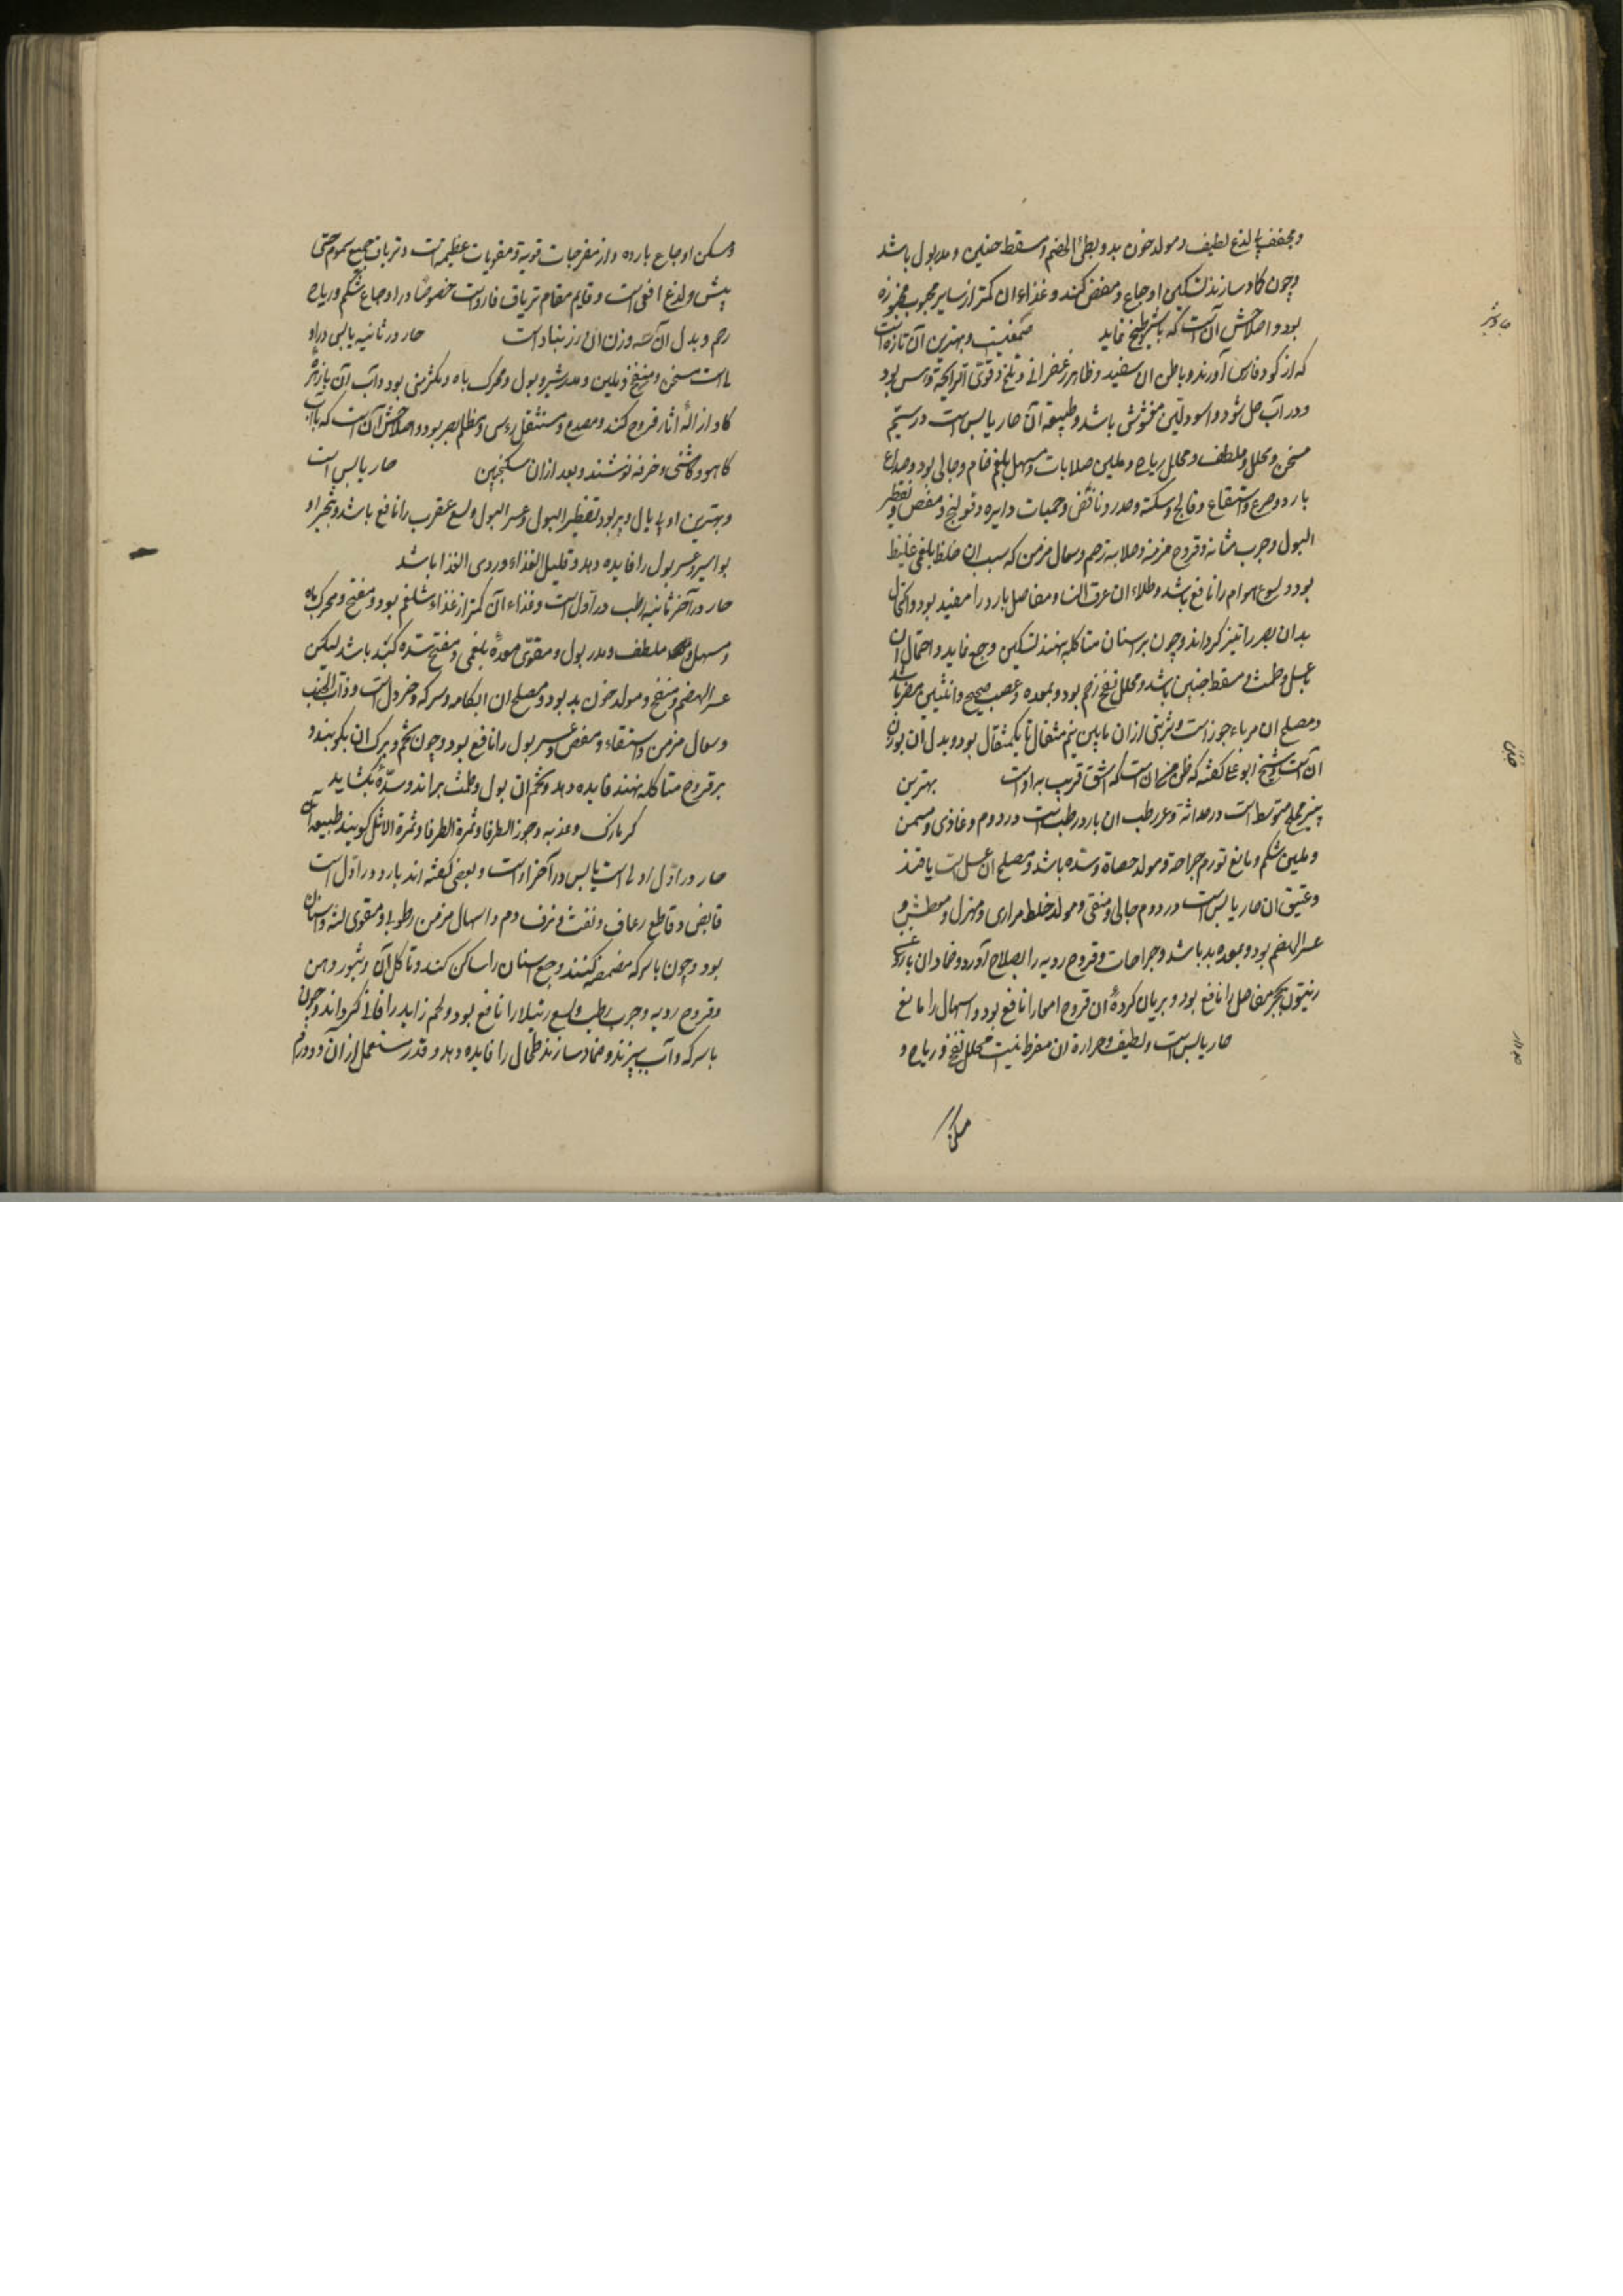 ومجفف بی لذع لطیف و مولد خون بد و بطئ الهضم و مسقط جنین و مدر بول باشد
و چون کماد سازند تسکین اوجاع و مغص کند و غذاء ان کمتر از سایر حبوب مخبوزه
بود و اصلاحش آن است که با شیر طبخ نماید صمغیست و بهترین آن تازه است
که از کوه فارس آورند و باطن ان سفید و ظاهر زعفرانی و تلخ و قوی الرایحة و املس بود
و در آب حل شود و اسود لین مغشوش باشد و طبیعة آن حار یابس است در سیم
مسخن و محلل و ملطف و محلل ریاح و ملین صلابات و مسهل بلغم خام و جالی بود و صداع
بارد و صرع و استسقاء و فالج و سکته و صدر و نافض و حمیات دایره و قولنج و مغص و تقطیر
البول و جرب مثانه و قروح مزمنه و صلابه رحم و سعال مزمن که سبب ان خلط بلغمی غلیظ
بود و لسوع هوام را نافع باشد و طلاء ان عرق النسا و مفاصل بارد را مفید بود و اکتحال
بدان بصر را تیز کرداند و چون بر اسنان متاکله نهند تسکین وجع نماید و احتمال ان
بعسل و طمث و مسقط جنین باشد و محلل نفخ رحم بود و بمعده و عصب صحیح و انثیین مضر باشد
و مصلح ان مرباء جوز است و شربتی از ان مابین نیم مثقال تا یکمثقال بود و بدل ان بوزن
ان است و شیخ ابو علی کفته که ظن من ان است که اشق قریب بر او است بهترین
پنیر مملح متوسط است در حداثة و عتق و رطب ان بارد رطب است در دوم و غاذی و مسمن
و ملین شکم و مانع تورم جراحة و مولد حصاة و سده باشد و مصلح ان عسل است یا قند
و عتیق ان حار یابس است در دوم جالی و منقی و مولد خلط مراری و مهزل و معطش و
عسر الهضم بود و بمعده بد باشد و جراحات و قروح ردیه را بصلاح آورد و ضماد ان با روغن
زیتون تحجر مفاصل را نافع بود و بریان کرده ان قروح امعا را نافع بود و اسهال را مانع
حار یابس است و لطیف و حرارة ان مفرط نیست محلل نفخ و ریاح و
مسکن
جاوشیر
جبن
و مسکن اوجاع بارده و از مفرحات قویة و مقویات عظیمه است و تریاق جمیع سموم حتی
بیش و لدغ افعی است و قایم مقام تریاق فاروست خصوصا در اوجاع شکم و ریاح
رحم و بدل آن سه وزن ان زرنباد است حار در ثانیه یابس در او
لی است مسخن و منضج و ملین و مدر شیر و بول و محرک باه و مکثر منی بود و آب آن
کاه ازاله اثار قروح کند و مصدع و مستثقل رءوس و مظلم بصر بود و اصلاحش آن است که با آب
کاهو و کاسنی و خرفه نوشند و بعد از ان سکنجبین حار یابس است
و بهترین او بود تقطیر البول و عسر البول و لسع عقرب را نافع باشد و تبخیر او
بواسیر و عسر بول را فایده دهد و قلیل الغذاء و ردی الغذا باشد
حار در آخر ثانیه رطب در اول است و غذاء آن کمتر از غذاء شلغم بود و منفخ و محرک باه
و مسهل ملطف و مدر بول و مقوی معدهٔ بلغمی و مفتح سده کبد باشد لیکن
عسر الهضم و منفخ و مولد خون بد بود و مصلح ان ابکامه و سرکه و خردل است و ذات الجنب
و سعال مزمن و استسقاء و مغص و عسر بول را نافع بود و چون تخم و برک ان بکوبند و
بر قروح متاکله نهند فایده دهد و تخم ان بول و طمث براند و سده بکشاید
کزمازک و عذبه و جوز الطرفا و ثمرة الطرفا و ثمرة الاثل کویند طبیعة آن
حار در اول اولی است یابس در آخر او است و بعضی کفته اند بارد در اول است
قابض و قاطع رعاف و نفث و نزف دم و اسهال مزمن رطوبی و مقوی لثه و اسنان
بود و چون با سرکه مضمضه کنند وجع اسنان را ساکن کند و تاکل آن و بثور دهن
و قروح ردیه و جرب رطب و لسع رتیلا را نافع بود و لحم زاید را فانی کرداند و چون
با سرکه و آب بپزند و ضماد سازند طحال را فایده دهد و قدر مستعمل از آن دو درم